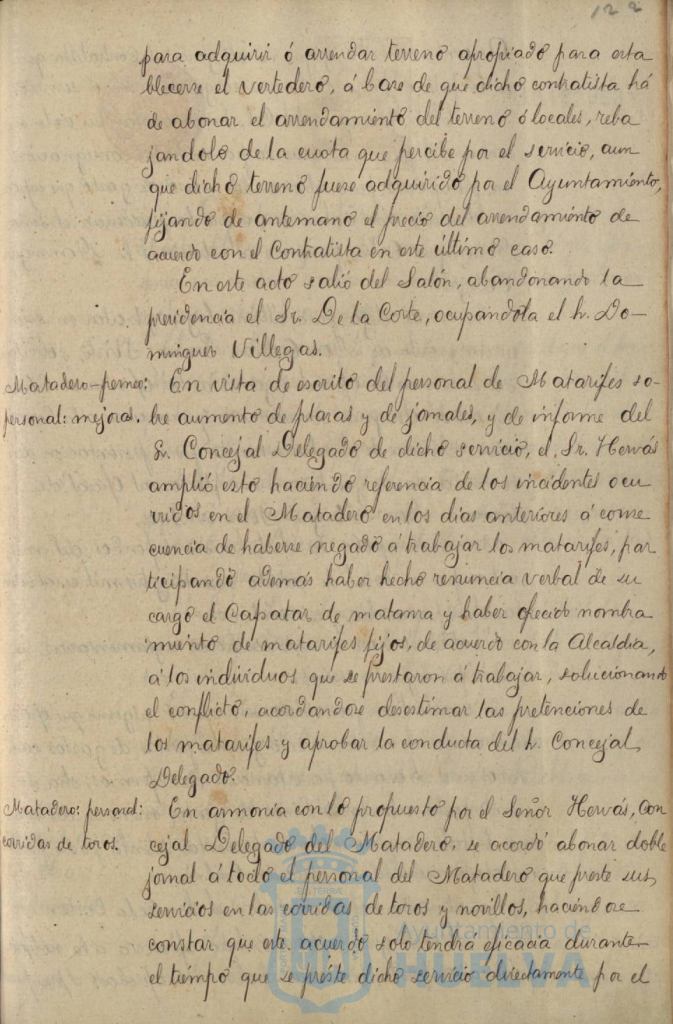 122
para adquirir ó arrendar terreno apropiado para esta
blecerse el vertedero, á base de que dicho contratista há
de abonar el arrendamiento del terreno ó locales, reba
jandolo de la cuota que percibe por el servicio, aun
que dicho terreno fuese adquirido por el Ayuntamiento,
fijando de antemano el precio del arrendamiento de
acuerdo con el Contratista en este último caso.
En este acto salió del Salón, abandonando la
presidencia el Sr. De la Corte, ocupandola el Sr. Do-
minguez Villegas.
Matadero: En vista de escrito del personal de Matarifes so-
personal: mejoras. bre aumento de plazas y de jornales, y de informe del
Sr. Concejal Delegado de dicho servicio, el Sr. Hervás
amplió esto haciendo referencia de los incidentes ocu
rridos en el Matadero en los dias anteriores á conse
cuencia de haberse negado á trabajar los matarifes, par
ticipando además haber hecho renuncia verbal de su
cargo el Capataz de matanza y haber ofrecido nombra
miento de matarifes fijos, de acuerdo con la Alcaldia,
á los individuos que se prestaron á trabajar, solucionando
el conflicto, acordandose desestimar las pretenciones de
los matarifes y aprobar la conducta del Sr. Concejal
Delegado.
Matadero: personal: En armonia con lo propuesto por el Señor Hervás, Con
corridas de toros. cejal Delegado del Matadero, se acordó abonar doble
jornal á todo el personal del Matadero que preste sus
servicios en las corridas de toros y novillos, haciendose
constar que este acuerdo solo tendrá eficacia durante
el tiempo que se preste dicho servicio directamente por el
Ayuntamiento de
HUELVA